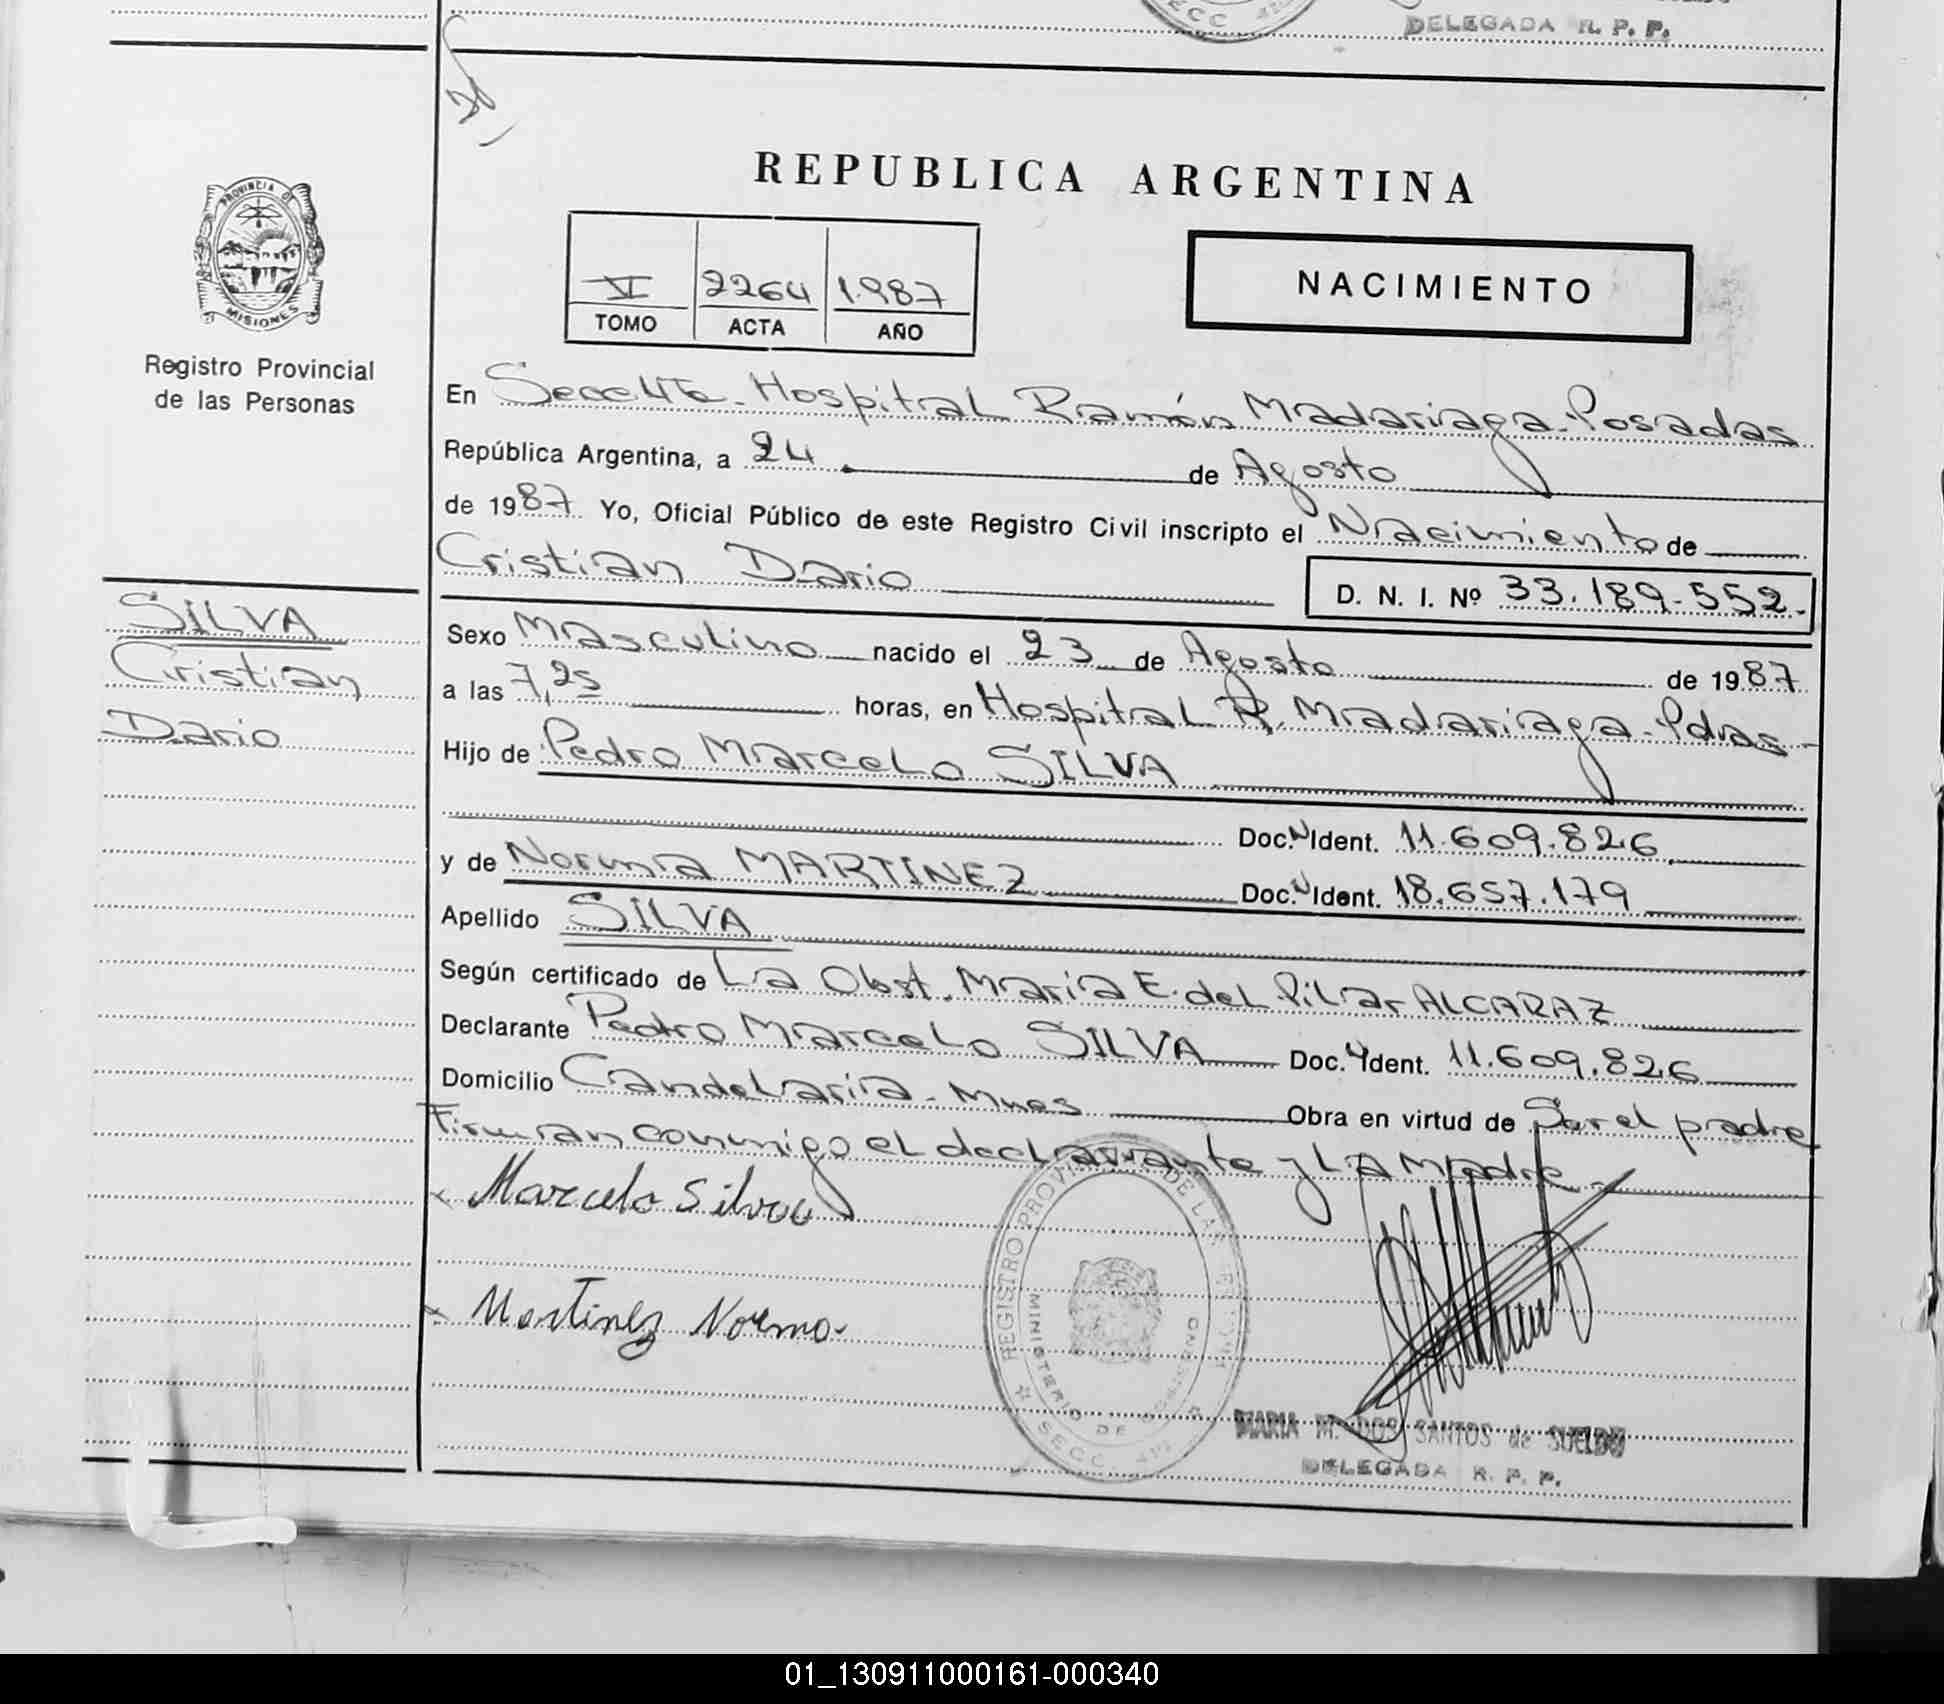 SECC
DELEGADA R. P. P.
REPUBLICA ARGENTINA
PROVINCIA DE
MISIONES
Registro Provincial
de las Personas
VI 2264 1.987
TOMO ACTA AÑO
NACIMIENTO
En Secc 4ta - Hospital Ramón Madariaga - Posadas
República Argentina, a 24 de Agosto
de 1987 Yo, Oficial Público de este Registro Civil inscripto el Nacimiento de
Cristian Dario D. N. I. Nº 33.189.552.-
SILVA
Cristian
Dario
Sexo Masculino nacido el 23 de Agosto de 1987
a las 7,25 horas, en Hospital R. Madariaga - Pdas -
Hijo de Pedro Marcelo SILVA
Doc. N Ident. 11.609.826
y de Norma MARTINEZ Doc. N Ident. 18.657.179
Apellido SILVA
Según certificado de La Obst. Maria E. del Pilar ALCARAZ
Declarante Pedro Marcelo SILVA Doc. Ident. 11.609.826
Domicilio Candelaria - Mnes Obra en virtud de Ser el padre
Firman conmigo el declarante y LA Madre
Marcelo Silva
Martinez Norma.
REGISTRO PROVINCIAL DE LAS PERSONAS
MINISTERIO DE GOBIERNO
SECC. 4ta
MARIA M. DOS SANTOS de SUELDO
DELEGADA R. P. P.
01_130911000161-000340